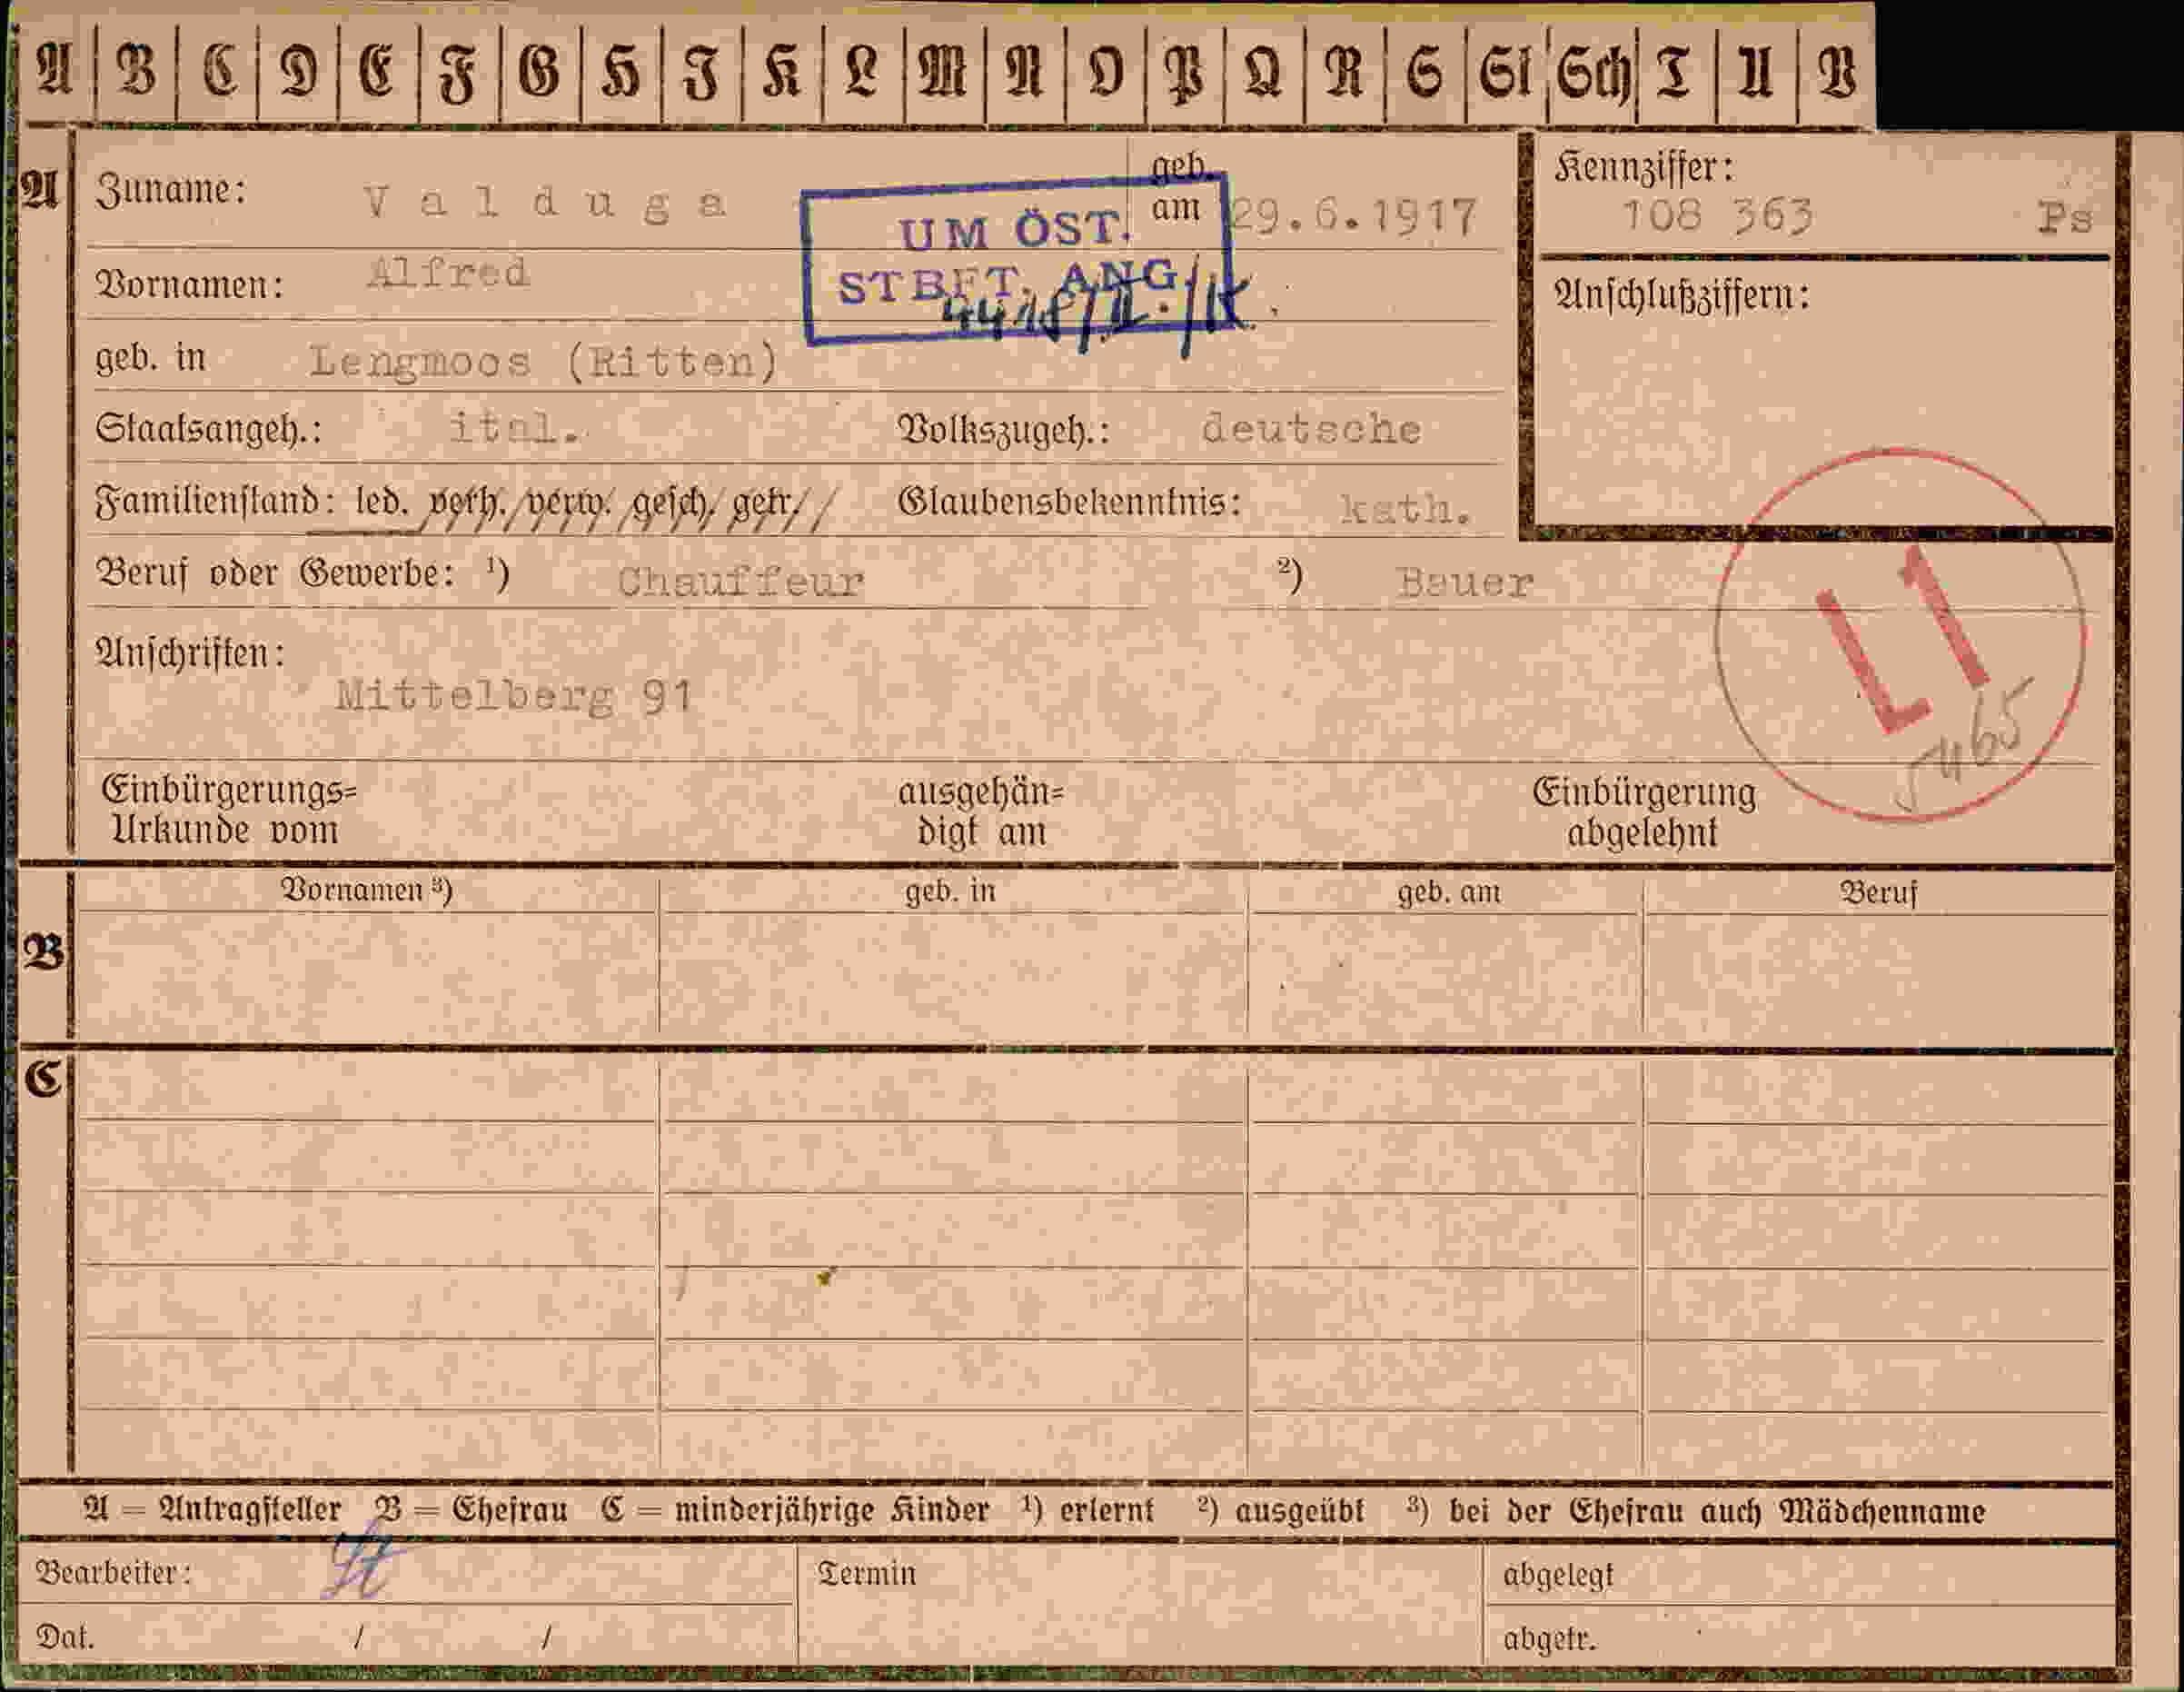 A B C D E F G H I K L M N O P Q R S St Sch T U V
A Zuname: Valduga geb. am 29.6.1917 Kennziffer: 108 363 Ps
UM ÖST.
STBFT. ANG.
Vornamen: Alfred
Anschlußziffern:
geb. in Lengmoos (Ritten)
Staatsangeh.: ital. Volkszugeh.: deutsche
Familienstand: led. verh. verw. gesch. getr. Glaubensbekenntnis: kath.
Beruf oder Gewerbe: ¹) Chauffeur ²) Bauer
L1
Anschriften:
Mittelberg 91
5465
Einbürgerungs= ausgehän= Einbürgerung
Urkunde vom digt am abgelehnt
Vornamen ³) geb. in geb. am Beruf
B
C
A = Antragsteller B = Ehefrau C = minderjährige Kinder ¹) erlernt ²) ausgeübt ³) bei der Ehefrau auch Mädchenname
Bearbeiter: Termin abgelegt
Dat. / / abgetr.